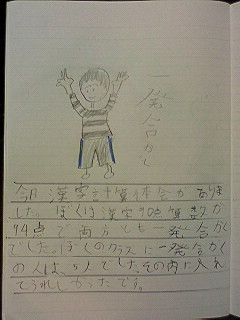 一発合かく
今日漢字計算体会がありま
した。ぼくは漢字90点算数が
94点で両方とも一発合かく
でした。ぼくのクラスに一発合かく
の人は、人でしたその内に入れ
てうれしかったです。